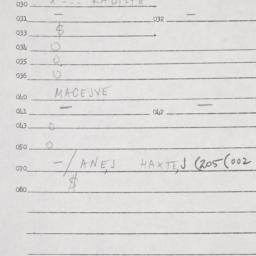 030
031 — 032 —
033 $
034 0
035 0
036 0
040 MACEJVE
041 — 042 —
043 0
050 0
070 —/ANEJ HAXTEJ (205(002
080 $